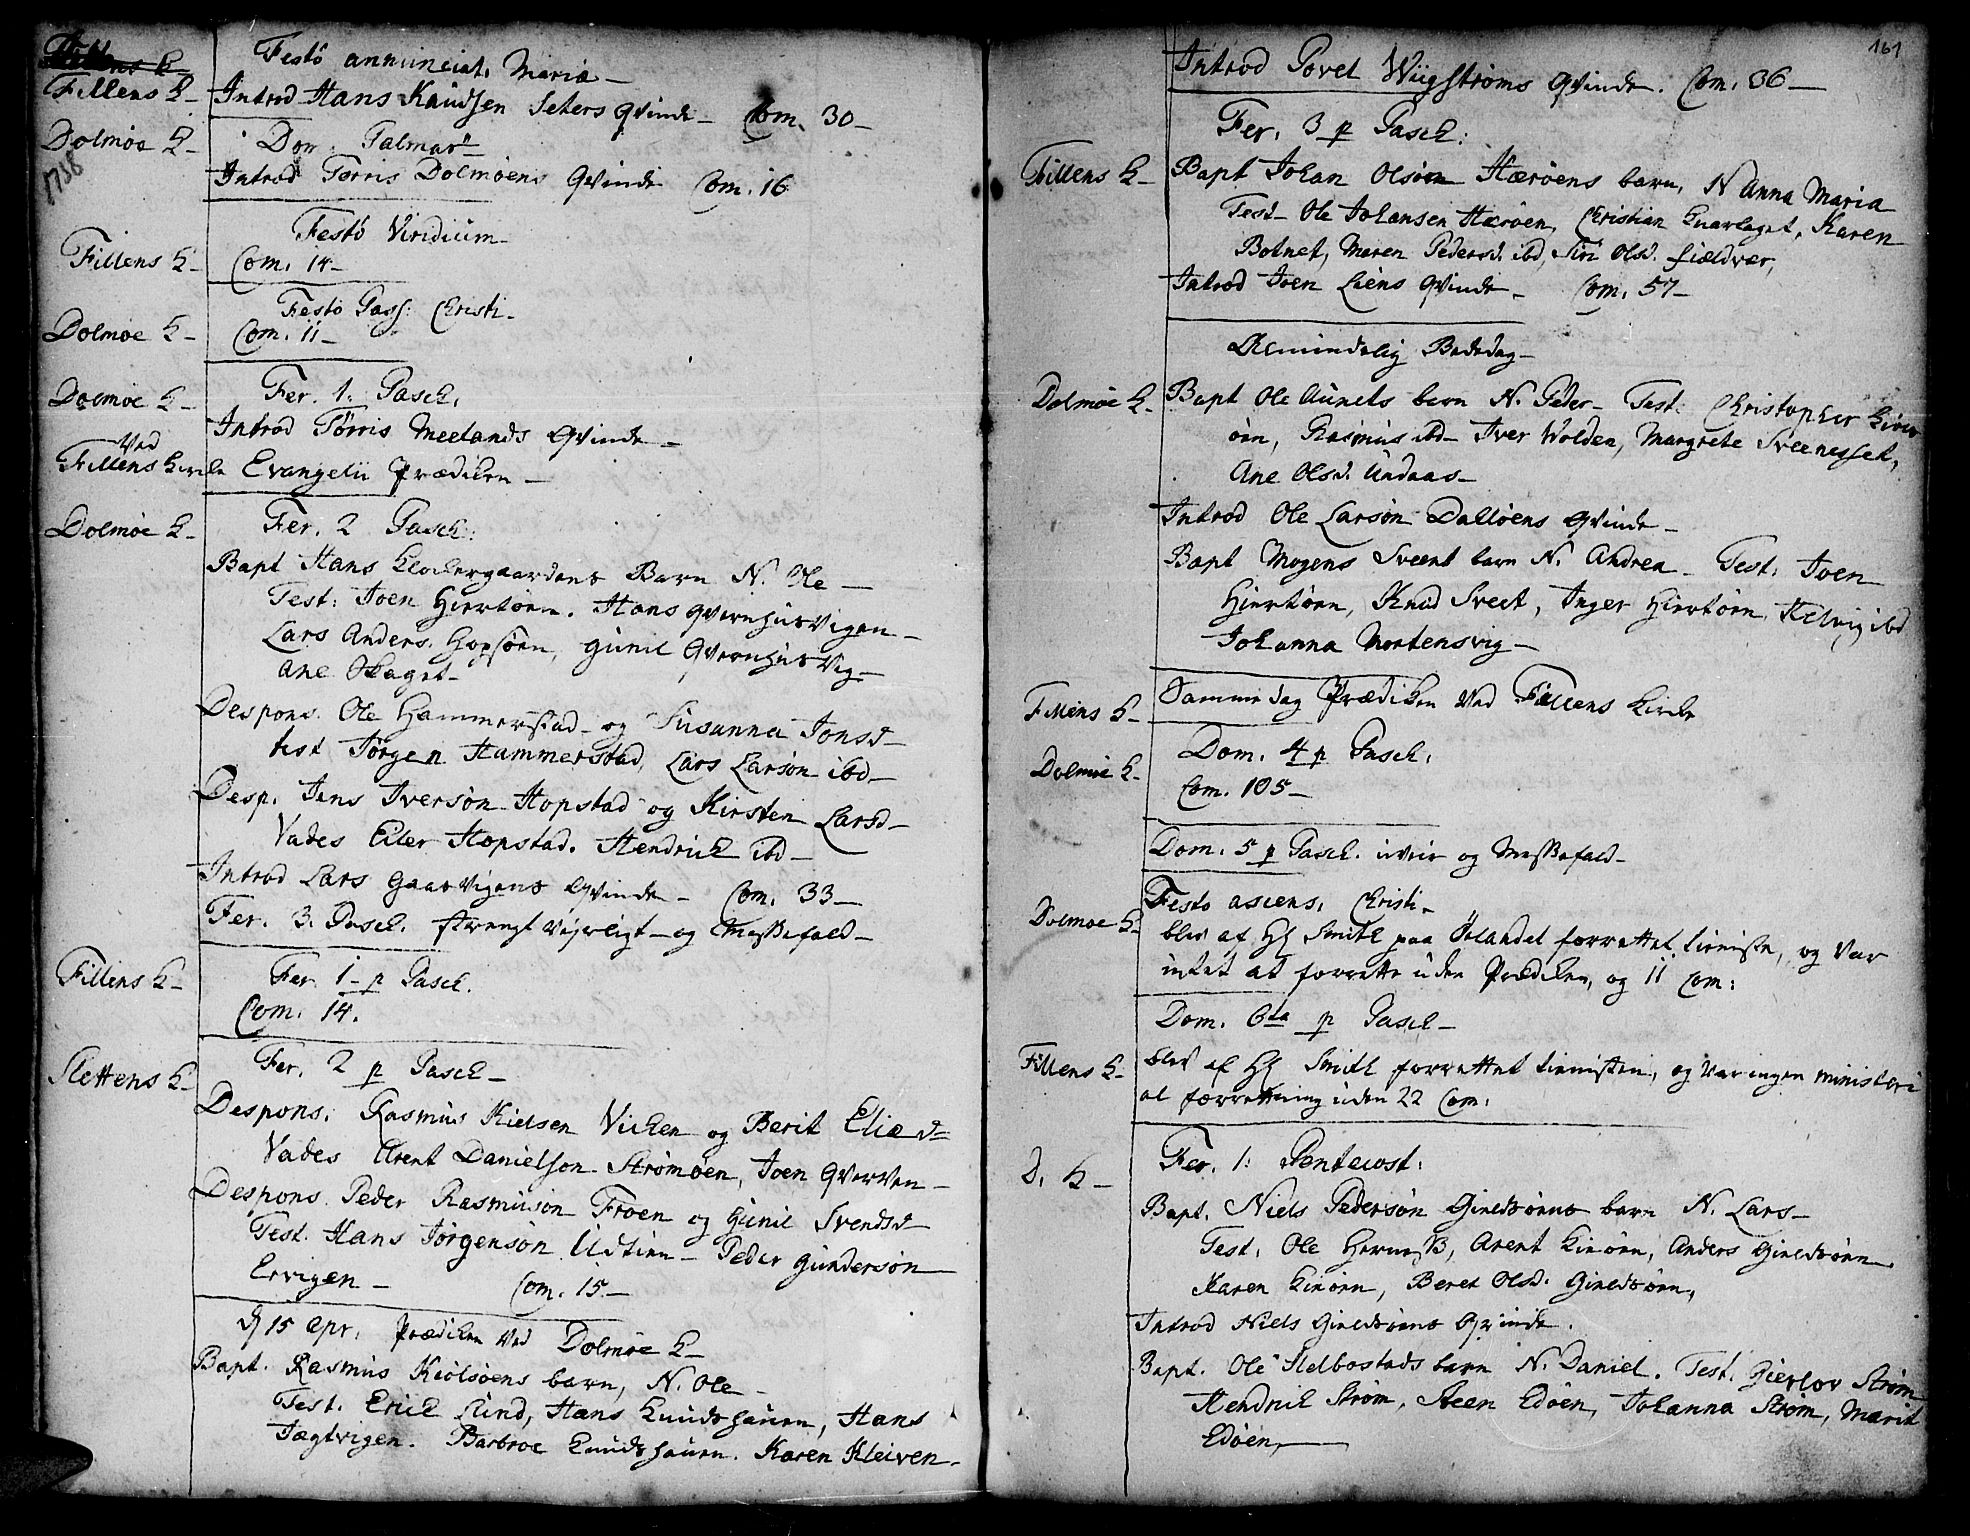 Festo annunciat. Mariæ
Fillens K. Introd Hans Knudsen Seters Qvinde Com. 30
Dolmøe K. Dom. Palmar
1758
Introd Tørris Dolmøens Qvinde Com. 16
Festo Viridium
Fillens K. Com. 14
Festo Pass: Christi
Dolmøe K. Com. 11
Dolmøe K. Fer. 1. Pasch.
Introd Tørris Meelands Qvinde
Ved
Fillens Kirke Evangelii Prædiken
Dolmøe K. Fer. 2 Pasch:
Bapt Hans Klockergaardens Barn N. Ole
Test: Joen Hiertøen. Hans QvernhusVigen
Lars Anders. Hopsøen, Gunil QvernhusVig
Ane Skaget
Despons. Ole Hammerstad og Susanna Jonsd
test Jørgen Hammerstad, Lars Larsøn ibd
Desp. Jens Iversøn Hopstad og Kirsten Larsd
Vades Eiler Hopstad. Hendrich ibd
Introd Lars Gaasvigens Qvinde Com. 33
Fer. 3. Pasch. strengt Vejrligt og Messefald
Fillens K. Fer. 1 p Pasch.
Com. 14.
Slettens K. Fer. 2 p Pasch
Despons. Rasmus Nielsen Vichen og Berit Eliæd
Vades Arent Danielsøn Strømøen, Joen Qverven
Despons. Peder Rasmusøn Froen og Gunil Svendsd
Test. Hans Jørgensøn Udtien Peder Gundersøn
Ervigen Com. 15
D 15 Apr. Prædiken Ved Dolmøe K
Bapt. Rasmus Kiølsøens barn, N. Ole
Test. Erich Sund, Hans Knudshaun, Hans
Jægtvigen. Barbroe Knudshaun. Karen Kleiven
161
Introd Povel Wiigstrøms Qvinde. Com. 36
Fer. 3 p Pasch:
Fillens K Bapt Johan Olsøn Hærøens barn, N Anna Maria
Test Ole Johansen Hærøen, Christian Kvarlaget, Karen
Botnet, Maren Pedersd. ibd, Siri Olsd. Fieldvær,
Introd Joen Liens Qvinde Com. 57
Almindelig Bededag
Dolmøe K. Bapt Ole Aunets barn N. Peder Test: Christopher Kirke
øen, Rasmus ibd Iver Wolden, Margrete Sveenesset,
Ane Olsd. Undaas
Introd Ole Larsøn Dalløens Qvinde
Bapt Mogens Sveent barn N. Andrea Test: Joen
Hiertøen, Knud Sveet, Inger Hiertøen, Helvig ibd
Johanna Mortensvig
Fillens K Samme dag Prædiken Ved Fillens Kirke
Dolmøe K. Dom. 4 p Pasch.
Com. 105
Dom. 5 p Pasch. uveir og Messefald
Festo ascens. Christi
Dolmøe K. blev af Hr Smith paa Ørlandet forrettet tienisten, og Var
intet at forrette uden Prædiken, og 11 Com:
Dom. 6ta p Pasch
Fillens K blev af Hr Smith forrettet tienisten, og Var ingen ministeri
al forretning uden 22 Com:
D. K Fer. 1: Pentecost:
Bapt. Niels Pedersøn Gieldsøens barn N. Lars
Test. Ole Hernes, Arent Kirøen, Anders Gieldsøen
Karen Kirøen, Beret Olsd. Gieldsøen,
Introd Niels Gieldsøens Qvinde.
Bapt. Ole Helbostads barn N. Daniel. Test. Gierlov Strøm
Hendrik Strøm, Steen Edøen, Johanna Strøm, Marit
Edøen,